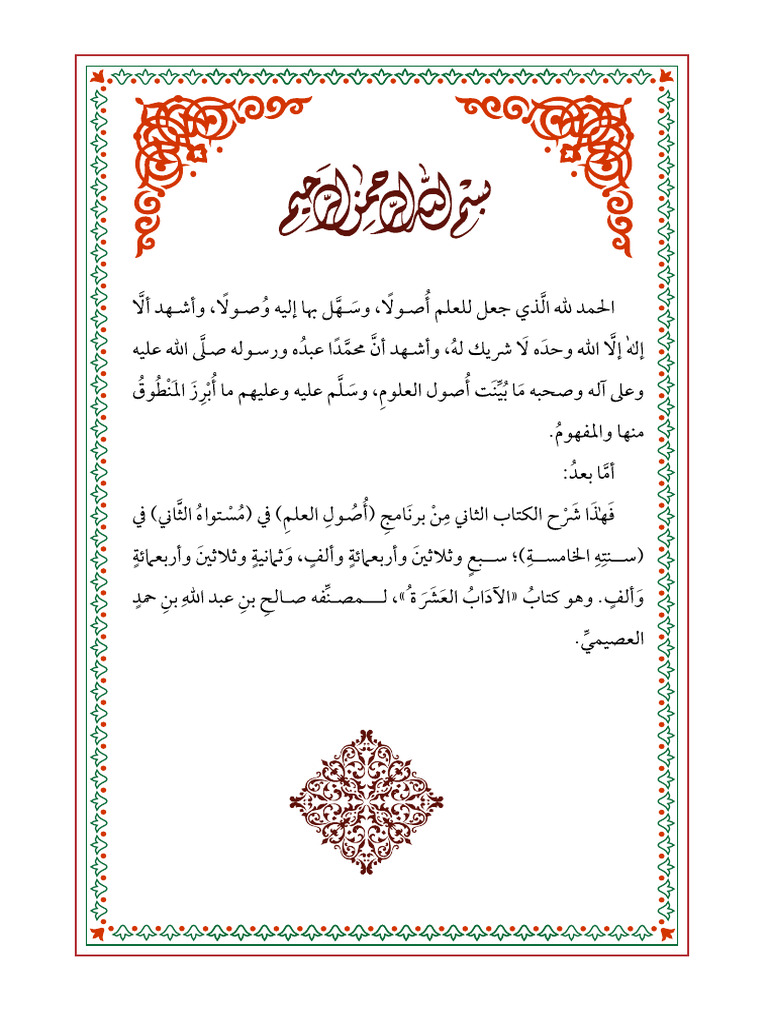 بسم الله الرحمن الرحيم
الحمد لله الَّذي جعل للعلم أُصولًا، وسَهَّل بها إليه وُصولًا، وأشهد ألَّا
إلهٰ إلَّا الله وحدَه لَا شريك لهُ، وأشهد أنَّ محمَّدًا عبدُه ورسوله صلَّى الله عليه
وعلى آله وصحبه مَا بُيِّنَت أُصول العلومِ، وسَلَّم عليه وعليهم ما أُبْرِزَ المَنْطُوقُ
منها والمفهومُ.
أمَّا بعدُ:
فَهذَا شَرْح الكتاب الثاني مِنْ برنَامجِ (أُصُولِ العلمِ) في (مُسْتواهُ الثَّاني) في
(سنتِهِ الخامسةِ)؛ سبعٍ وثلاثينَ وأربعمائةٍ وألفٍ، وَثمانيةٍ وثلاثينَ وأربعمائةٍ
وَألفٍ. وهو كتابُ «الآدَابُ العَشَرَةُ»، لـمصنِّفه صالحِ بنِ عبد اللهِ بنِ حمدٍ
العصيميِّ.